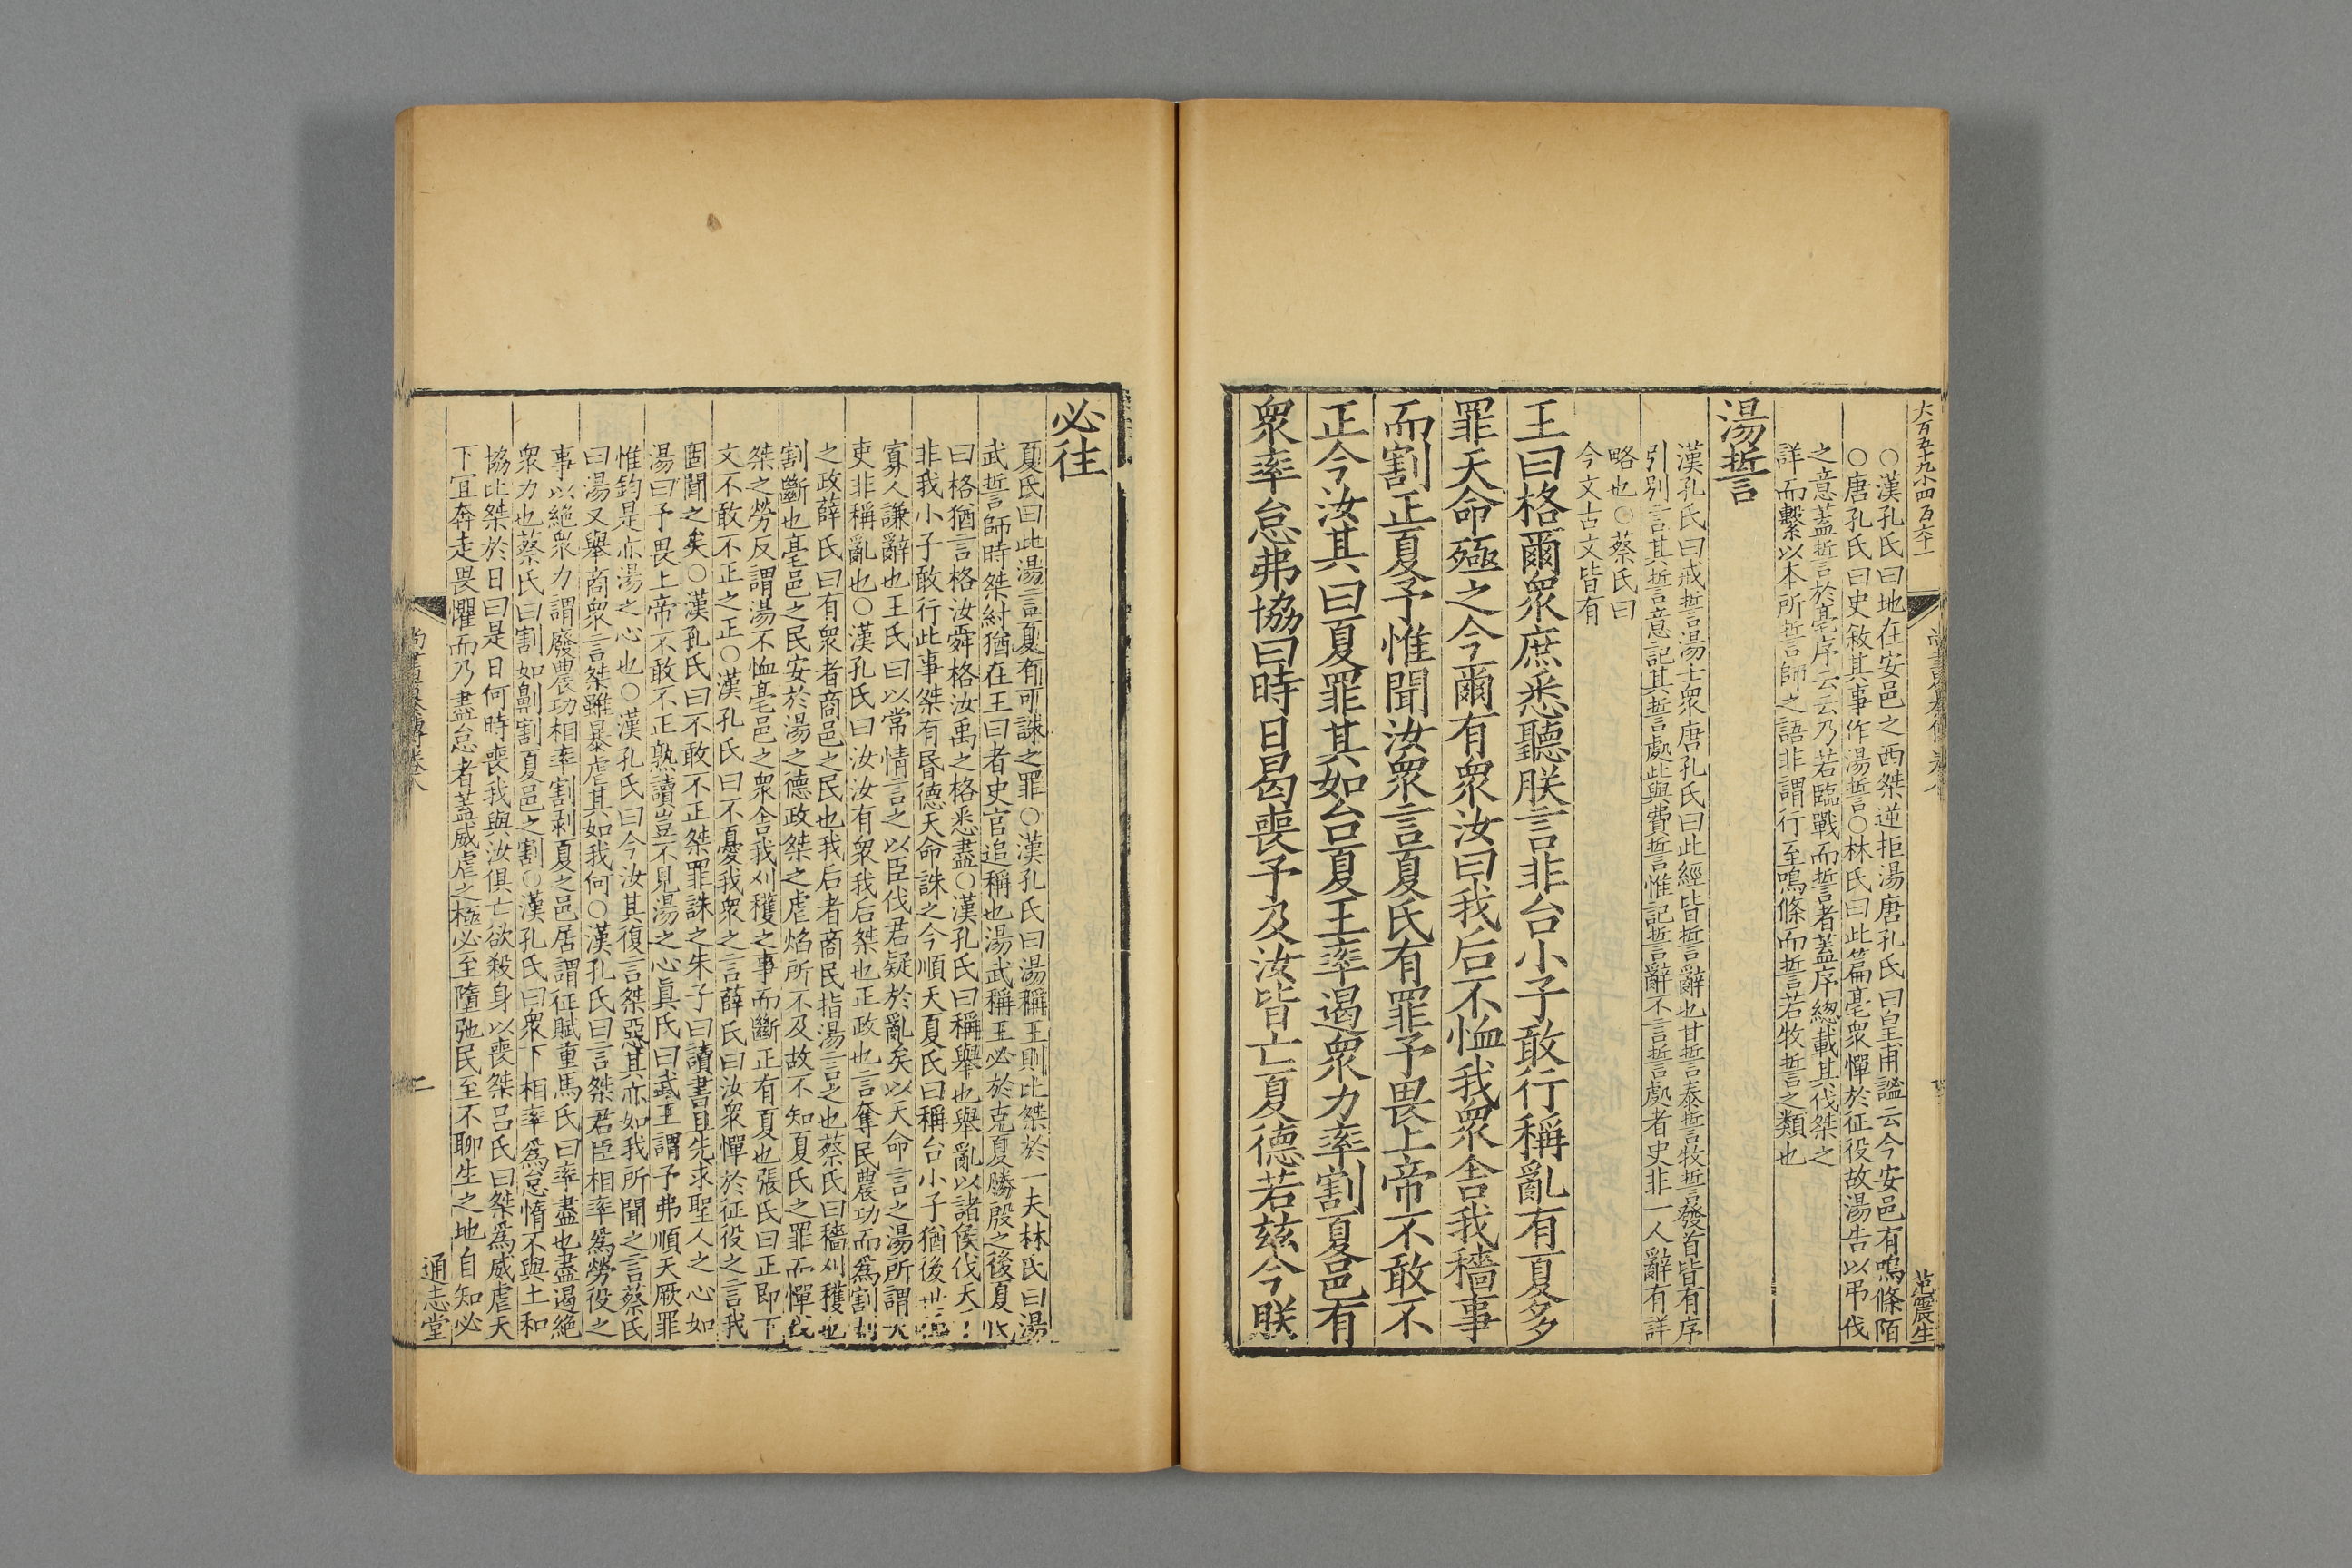 大百五十九小四百六十一
范震生
○漢孔氏曰地在安邑之西桀逆拒湯唐孔氏曰皇甫謐云今安邑有鳴條陌
○唐孔氏曰史敘其事作湯誓○林氏曰此篇亳衆憚於征役故湯告以弔伐
之意蓋誓言於亳序云云乃若臨戰而誓者蓋序緫載其伐桀之
詳而繫以本所誓師之語非謂行至鳴條而誓若牧誓之類也
湯誓
漢孔氏曰戒誓湯士衆唐孔氏曰此經皆誓辭也甘誓泰誓牧誓發首皆有序
引别言其誓意記其誓處此與費誓惟記誓辭不言誓處者史非一人辭有詳
略也○蔡氏曰
今文古文皆有
王曰格爾衆庶悉聽朕言非台小子敢行稱亂有夏多
罪天命殛之今爾有衆汝曰我后不恤我衆舍我穡事
而割正夏予惟聞汝衆言夏氏有罪予畏上帝不敢不
正今汝其曰夏罪其如台夏王率遏衆力率割夏邑有
衆率怠弗協曰時日曷喪予及汝皆亡夏德若兹今朕
必往
夏氏曰此湯言夏有可誅之罪○漢孔氏曰湯稱王則比桀於一夫林氏曰湯
武誓師時桀紂猶在王曰者史官追稱也湯武稱王必於克夏勝殷之後夏氏
曰格猶言格汝舜格汝禹之格悉盡○漢孔氏曰稱舉也舉亂以諸侯伐天
非我小子敢行此事桀有昏德天命誅之今順天夏氏曰稱台小子猶後世
寡人謙辭也王氏曰以常情言之以臣伐君疑於亂矣以天命言之湯所謂天
吏非稱亂也○漢孔氏曰汝汝有衆我后桀也正政也言奪民農功而爲割剥
之政薛氏曰有衆者商邑之民也我后者商民指湯言之也蔡氏曰穡刈穫也
割斷也亳邑之民安於湯之德政桀之虐焰所不及故不知夏氏之罪而憚伐
桀之勞反謂湯不恤亳邑之衆舍我刈穫之事而斷正有夏也張氏曰正即下
文不敢不正之正○漢孔氏曰不憂我衆之言薛氏曰汝衆憚於征役之言我
固聞之矣○漢孔氏曰不敢不正桀罪誅之朱子曰讀書且先求聖人之心如
湯曰予畏上帝不敢不正熟讀豈不見湯之心真氏曰武王謂予弗順天厥罪
惟鈞是亦湯之心也○漢孔氏曰今汝其復言桀惡其亦如我所聞之言蔡氏
曰湯又舉商衆言桀雖暴虐其如我何○漢孔氏曰言桀君臣相率爲勞役之
事以絶衆力謂廢農功相率割剥夏之邑居謂征賦重馬氏曰率盡也盡遏絶
衆力也蔡氏曰割如劓割夏邑之割○漢孔氏曰衆下相率爲怠惰不與上和
協比桀於日曰是日何時喪我與汝俱亡欲殺身以喪桀呂氏曰桀爲威虐天
下宜奔走畏懼而乃盡怠者蓋威虐之極必至隳弛民至不聊生之地自知必
尚書纂傳卷八
二
通志堂